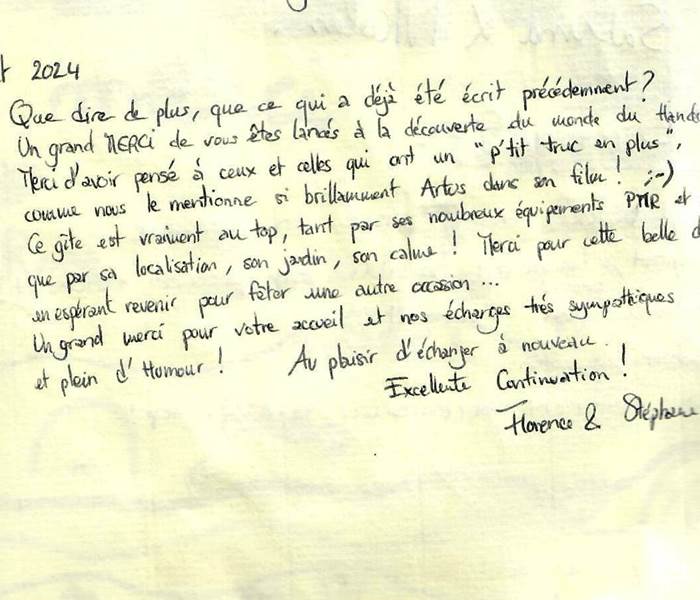 t 2024
Que dire de plus, que ce qui a déjà été écrit précédemment ?
Un grand MERCI de vous êtes lancés à la découverte du monde du Hand
Merci d'avoir pensé à ceux et celles qui ont un "p'tit truc en plus",
comme nous le mentionne si brillamment Artus dans son film ! ;-)
Ce gîte est vraiment au top, tant par ses nombreux équipements PMR et
que par sa localisation, son jardin, son calme ! Merci pour cette belle d
en espérant revenir pour fêter une autre occasion ...
Un grand merci pour votre accueil et nos échanges très sympathiques
et plein d'Humour ! Au plaisir d'échanger à nouveau.
Excellente Continuation !
Florence & Stéphane